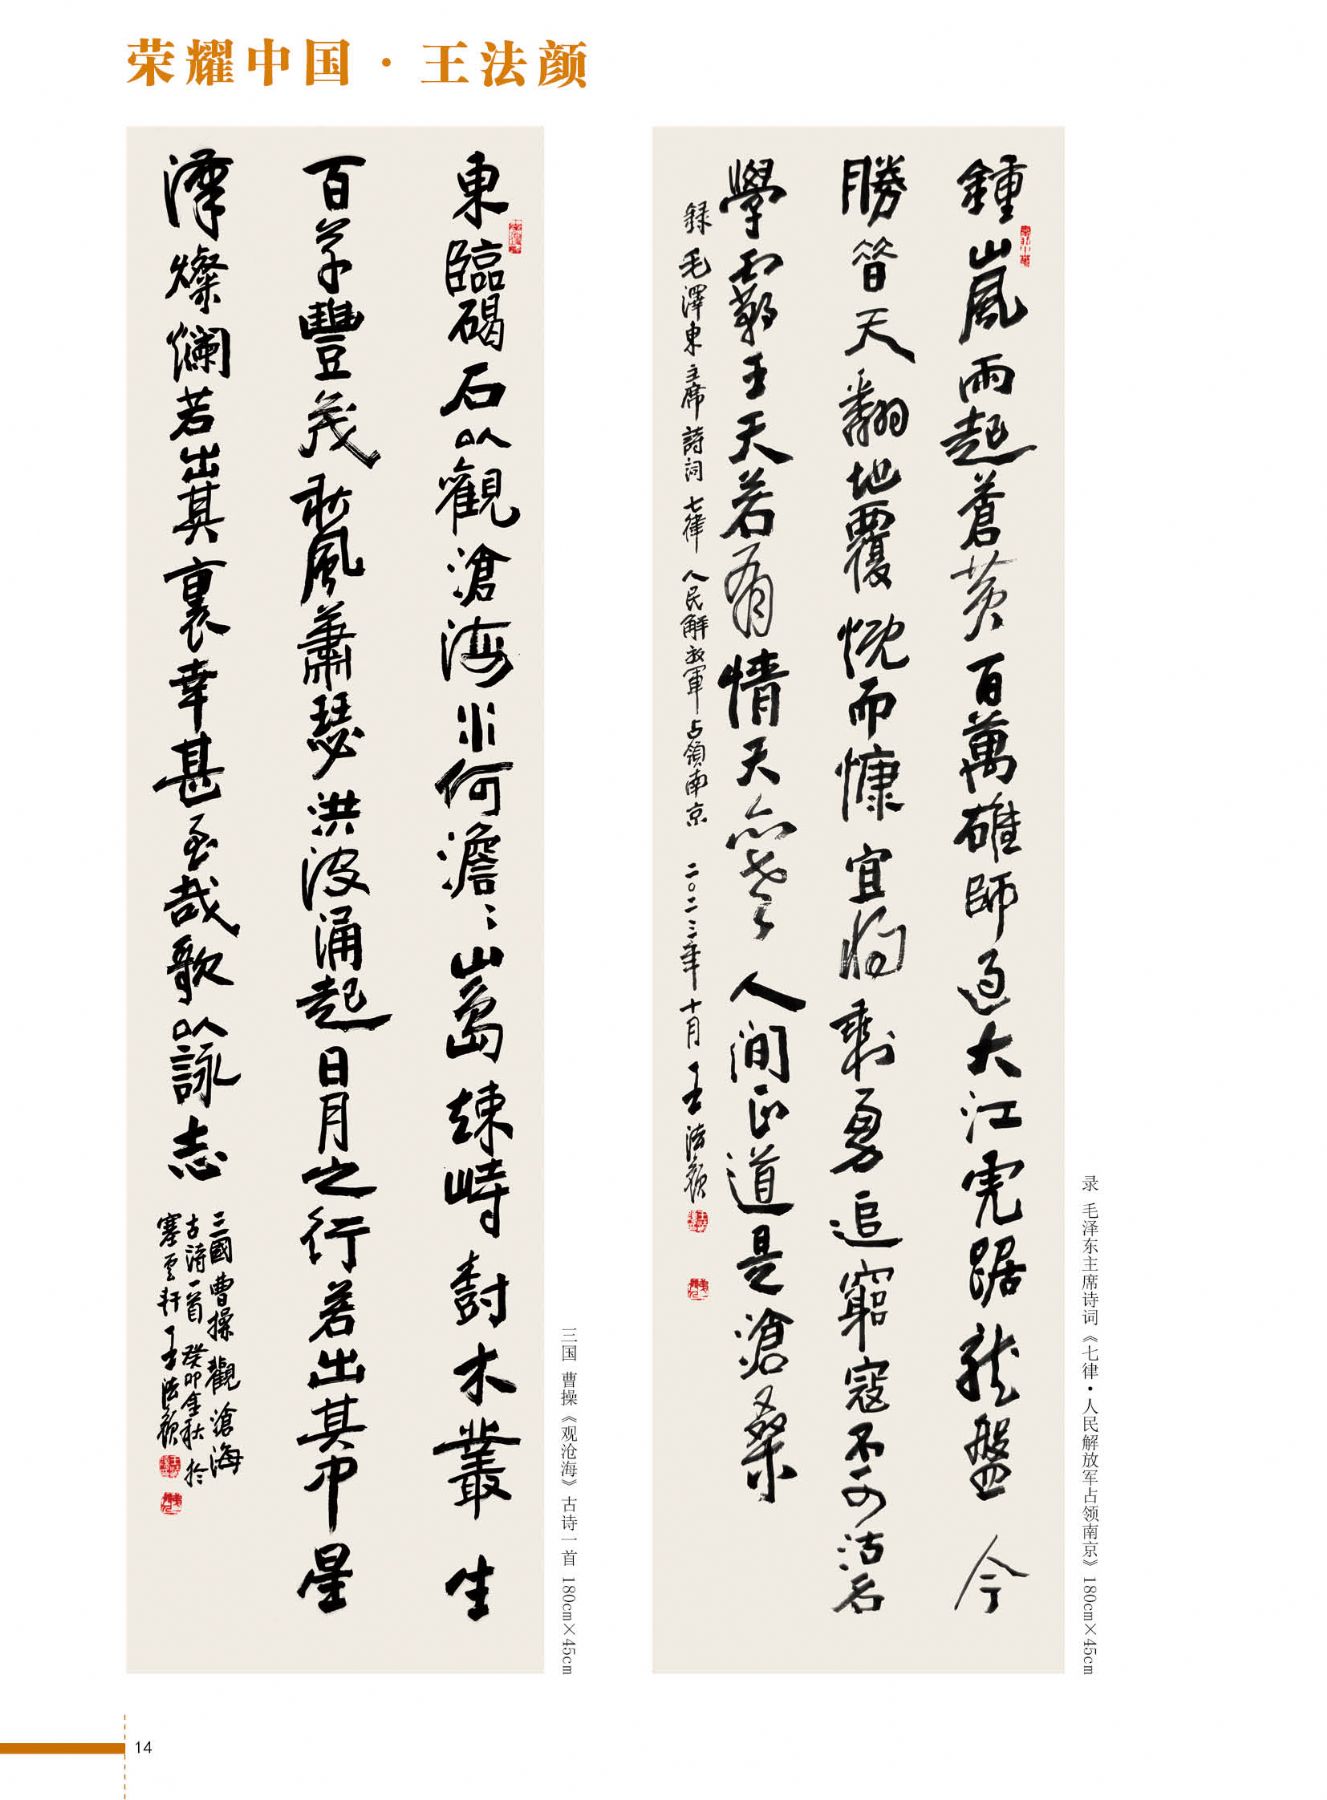 荣耀中国·王法颜
鍾山風雨起蒼黃百萬雄師過大江虎踞龍盤今
勝昔天翻地覆慨而慷宜將剩勇追窮寇不可沽名
學霸王天若有情天亦老人間正道是滄桑
録毛澤東主席詩詞七律人民解放軍占領南京 二〇二三年十月王法顏
录 毛泽东主席诗词《七律·人民解放军占领南京》180cm×45cm
東臨碣石以觀滄海水何澹〻山島竦峙樹木叢生
百草豐茂秋風蕭瑟洪波涌起日月之行若出其中星
漢燦爛若出其裏幸甚至哉歌以詠志
三國曹操觀滄海
古詩一首癸卯金秋於
塞雲軒王法顏
三国 曹操《观沧海》古诗一首 180cm×45cm
14